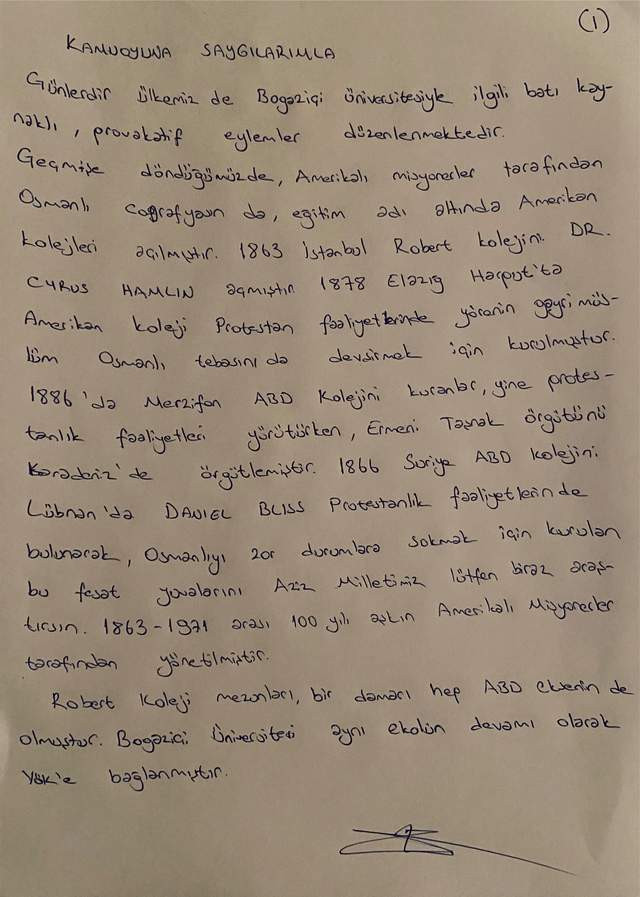 (1)
KAMUOYUNA SAYGILARIMLA
Günlerdir ülkemiz de Bogaziçi üniversitesiyle ilgili batı kay-
naklı, provakatif eylemler düzenlenmektedir.
Geçmişe döndüğümüzde, Amerikalı misyonerler tarafından
Osmanlı coğrafyasın da, eğitim adı altında Amerikan
kolejleri açılmıştır. 1863 İstanbul Robert kolejini DR.
CYRUS HAMLIN açmıştır 1878 Elazığ Harput'ta
Amerikan koleji Protestan faaliyetlerinde yörenin gayri müs-
lüm Osmanlı tebasını da devşirmek için kurulmuştur.
1886'da Merzifon ABD Kolejini kuranlar, yine protes-
tanlık faaliyetleri yürütürken, Ermeni Taşnak örgütünü
Karadeniz'de örgütlemiştir. 1866 Suriye ABD kolejini
Lübnan'da DANIEL BLISS Protestanlık faaliyetlerin de
bulunarak, Osmanlıyı zor durumlara sokmak için kurulan
bu fesat yuvalarını Aziz Milletimiz lütfen biraz araş-
tırsın. 1863-1971 arası 100 yılı aşkın Amerikalı Misyonerler
tarafından yönetilmiştir.
Robert Koleji mezunları, bir damarı hep ABD ekserin de
olmuştur. Bogaziçi Üniversitesi aynı ekolün devamı olarak
YÖK'e bağlanmıştır.